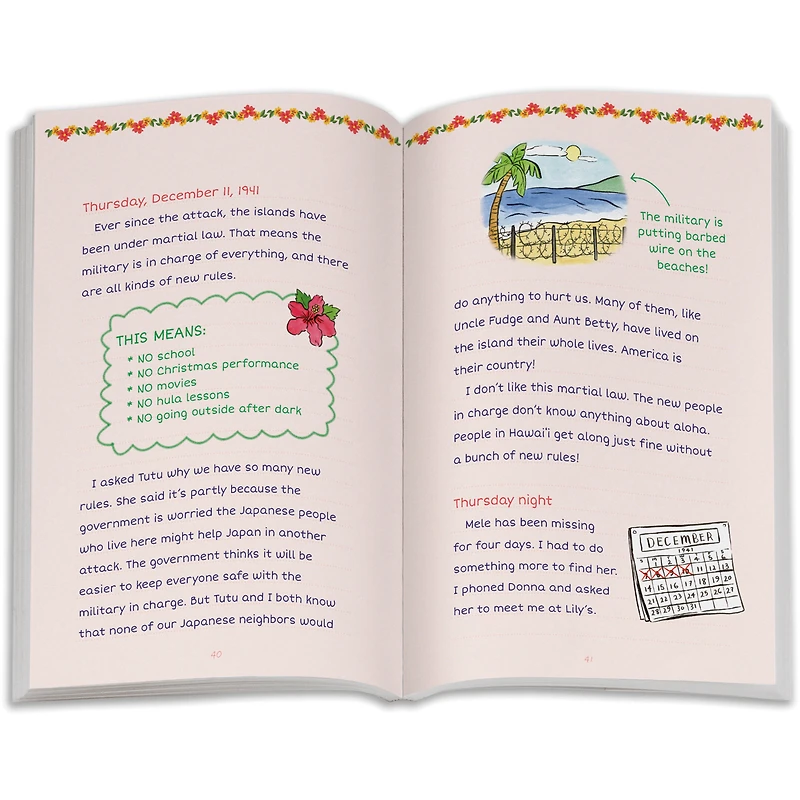 Thursday, December 11, 1941
Ever since the attack, the islands have
been under martial law. That means the
military is in charge of everything, and there
are all kinds of new rules.
THIS MEANS:
* NO school
* NO Christmas performance
* NO movies
* NO hula lessons
* NO going outside after dark
I asked Tutu why we have so many new
rules. She said it's partly because the
government is worried the Japanese people
who live here might help Japan in another
attack. The government thinks it will be
easier to keep everyone safe with the
military in charge. But Tutu and I both know
that none of our Japanese neighbors would
40
The military is
putting barbed
wire on the
beaches!
do anything to hurt us. Many of them, like
Uncle Fudge and Aunt Betty, have lived on
the island their whole lives. America is
their country!
I don't like this martial law. The new people
in charge don't know anything about aloha.
People in Hawai'i get along just fine without
a bunch of new rules!
Thursday night
Mele has been missing
for four days. I had to do
something more to find her.
I phoned Donna and asked
her to meet me at Lily's.
DECEMBER
1941
1 2 3 4 5 6
11 12 13
14 15 16 17 18 19 20
21 22 23 24 25 26 27
28 29 30 31
41